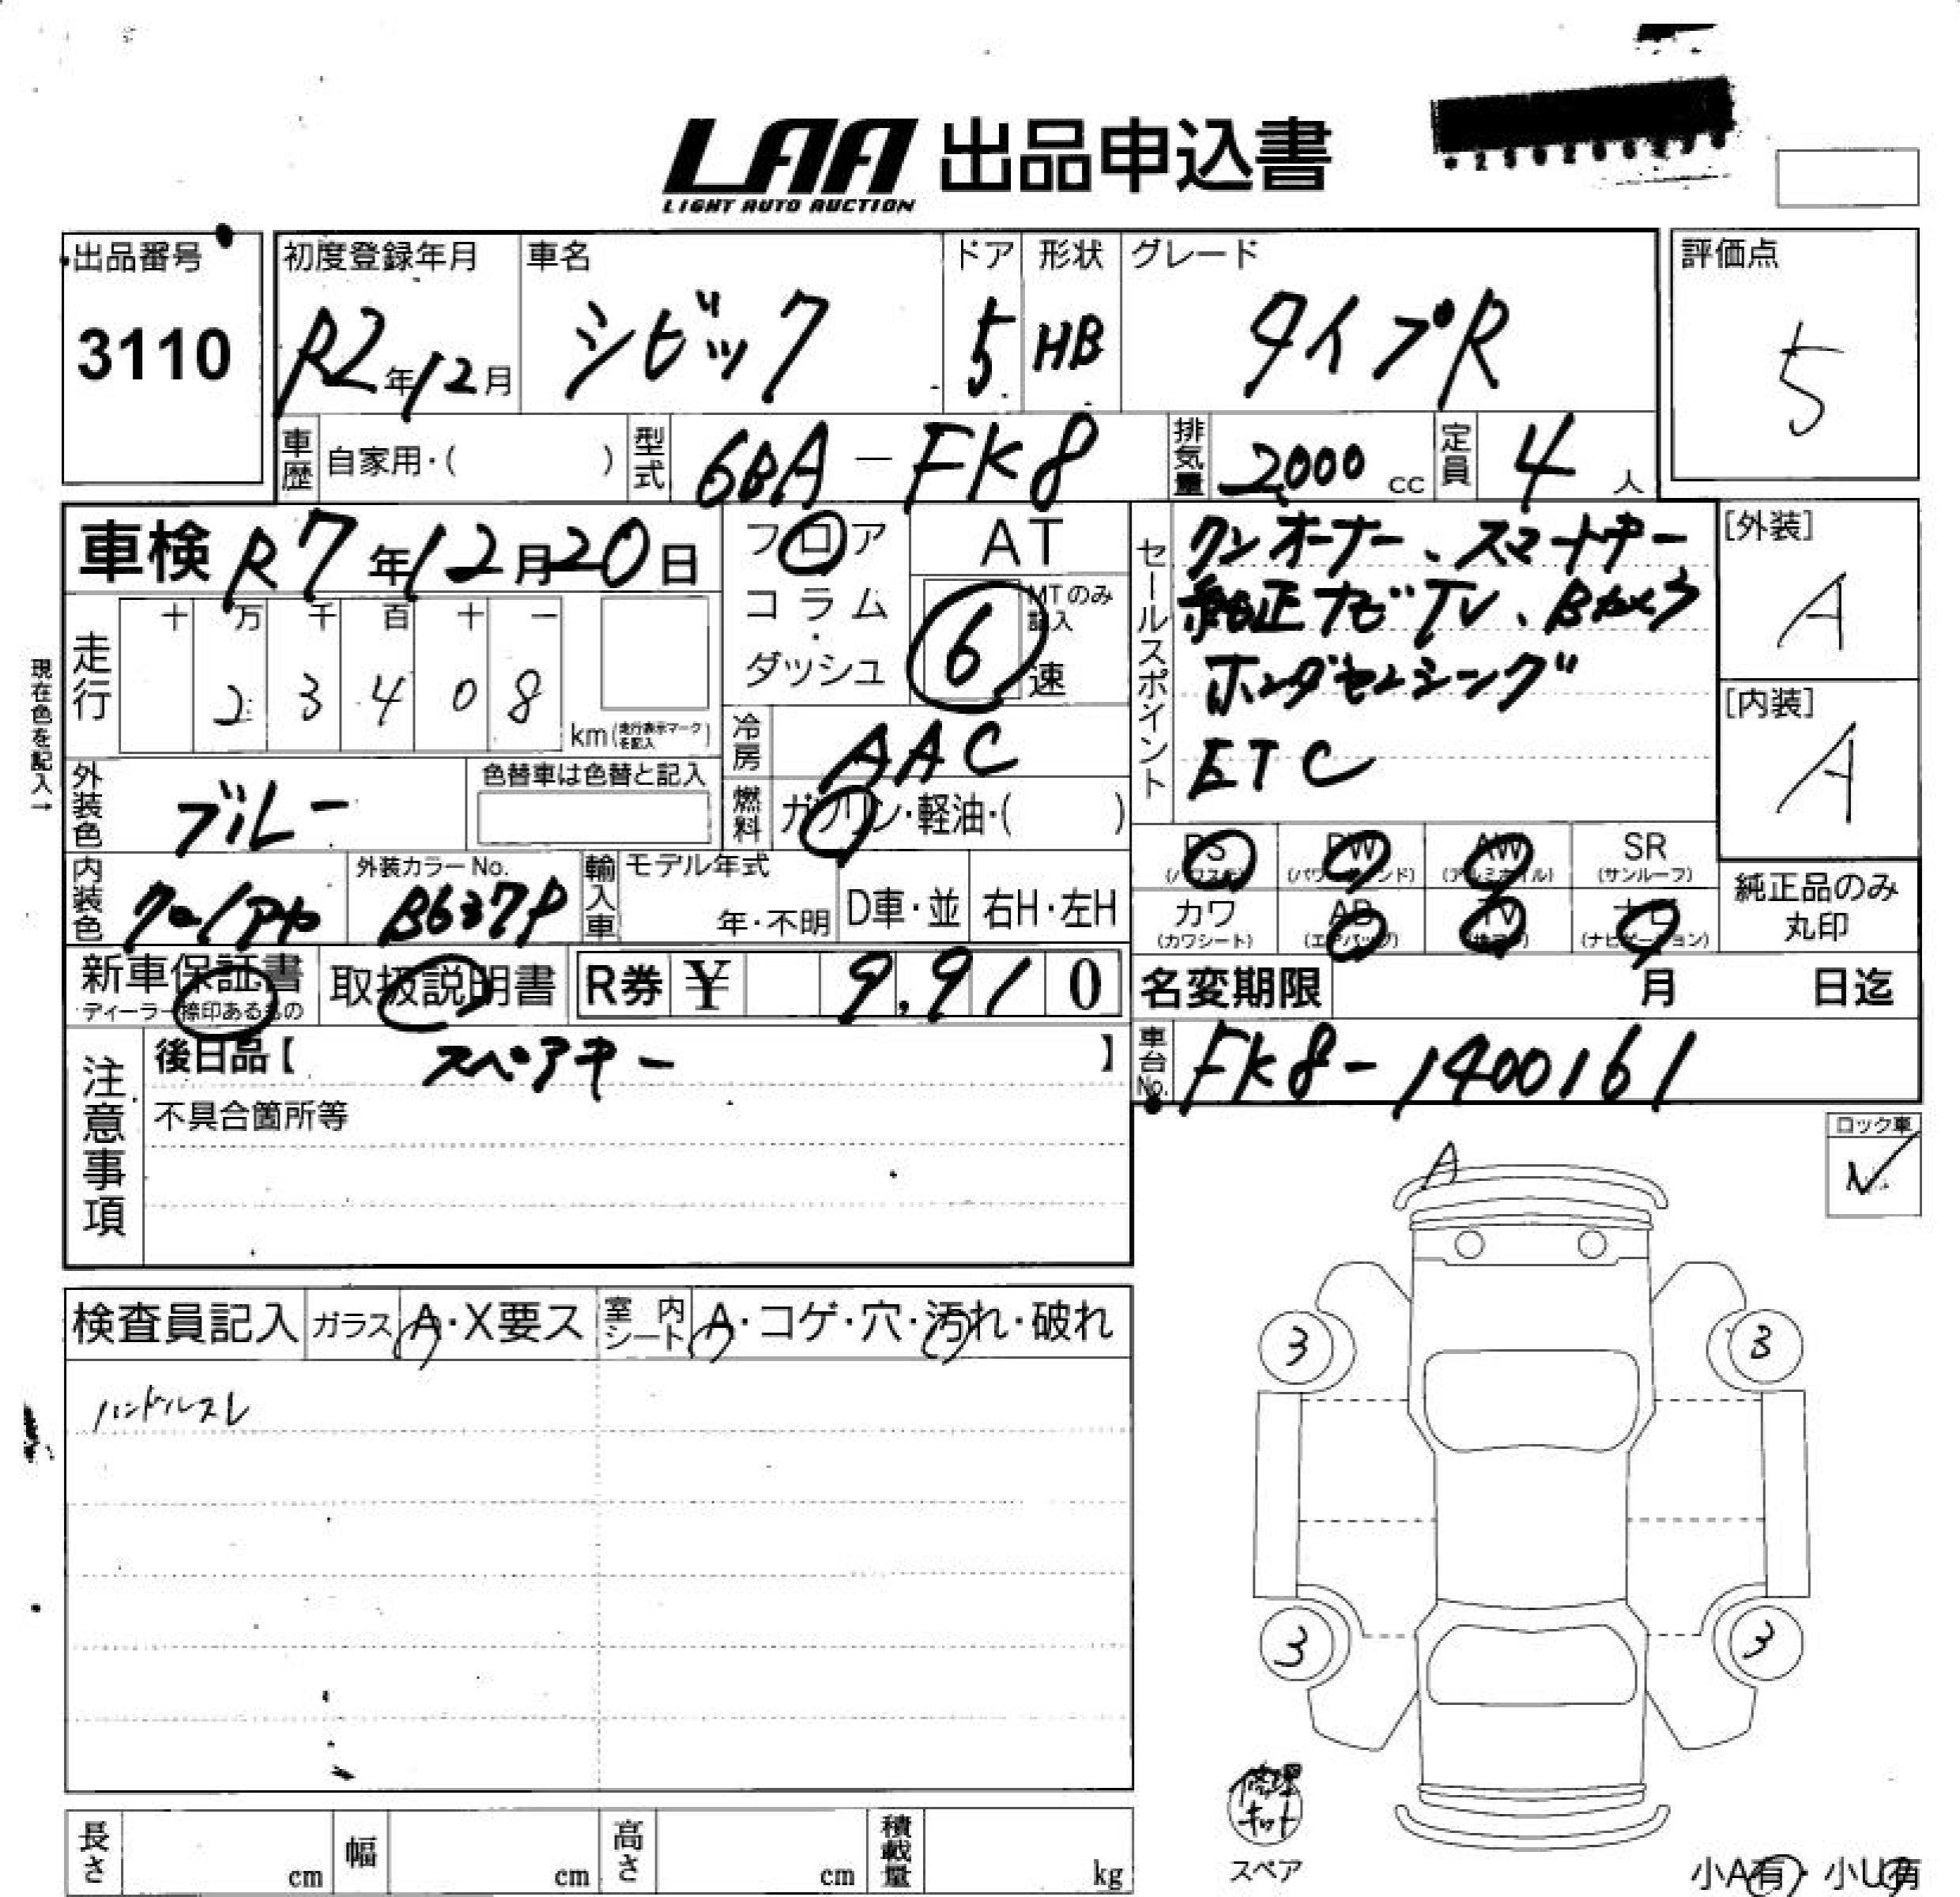 LAA 出品申込書
LIGHT AUTO AUCTION
出品番号
3110
初度登録年月
R2年12月
車名
シビック
ドア
5
形状
HB
グレード
タイプR
評価点
5
車歴 自家用・( )
型式 6BA-FK8
排気量 2000 cc
定員 4 人
車検 R7年12月20日
フロア
コラム
・
ダッシュ
AT
MTのみ記入
6 速
セールスポイント
ワンオーナー、スマートキー
純正ナビTV、Bカメラ
ホンダセンシング
ETC
[外装]
A
[内装]
A
現在色を記入→
走行
十 万 千 百 十 一
2 3 4 0 8
km(走行表示マークを記入)
冷房 AAC
燃料 ガソリン・軽油・( )
外装色 ブルー
色替車は色替と記入
内装色
外装カラーNo.
B637P
輸入車
モデル年式
年・不明
D車・並
右H・左H
PS
(パワステ)
PW
(パワーウィンド)
AW
(アルミホイル)
SR
(サンルーフ)
カワ
(カワシート)
AB
(エアバッグ)
TV
ナビ
(ナビゲーション)
純正品のみ
丸印
新車保証書
ディーラー捺印あるもの
取扱説明書
R券 ¥ 9,910
名変期限 月 日迄
注意事項
後日品【 スペアキー 】
不具合箇所等
車台No. FK8-1400161
ロック車
A
検査員記入
ガラス A・X要ス
室内シート A・コゲ・穴・汚れ・破れ
ハンドルスレ
3 3
3 3
修理
キット
スペア
長さ cm
幅 cm
高さ cm
積載量 kg
小A有・小U有